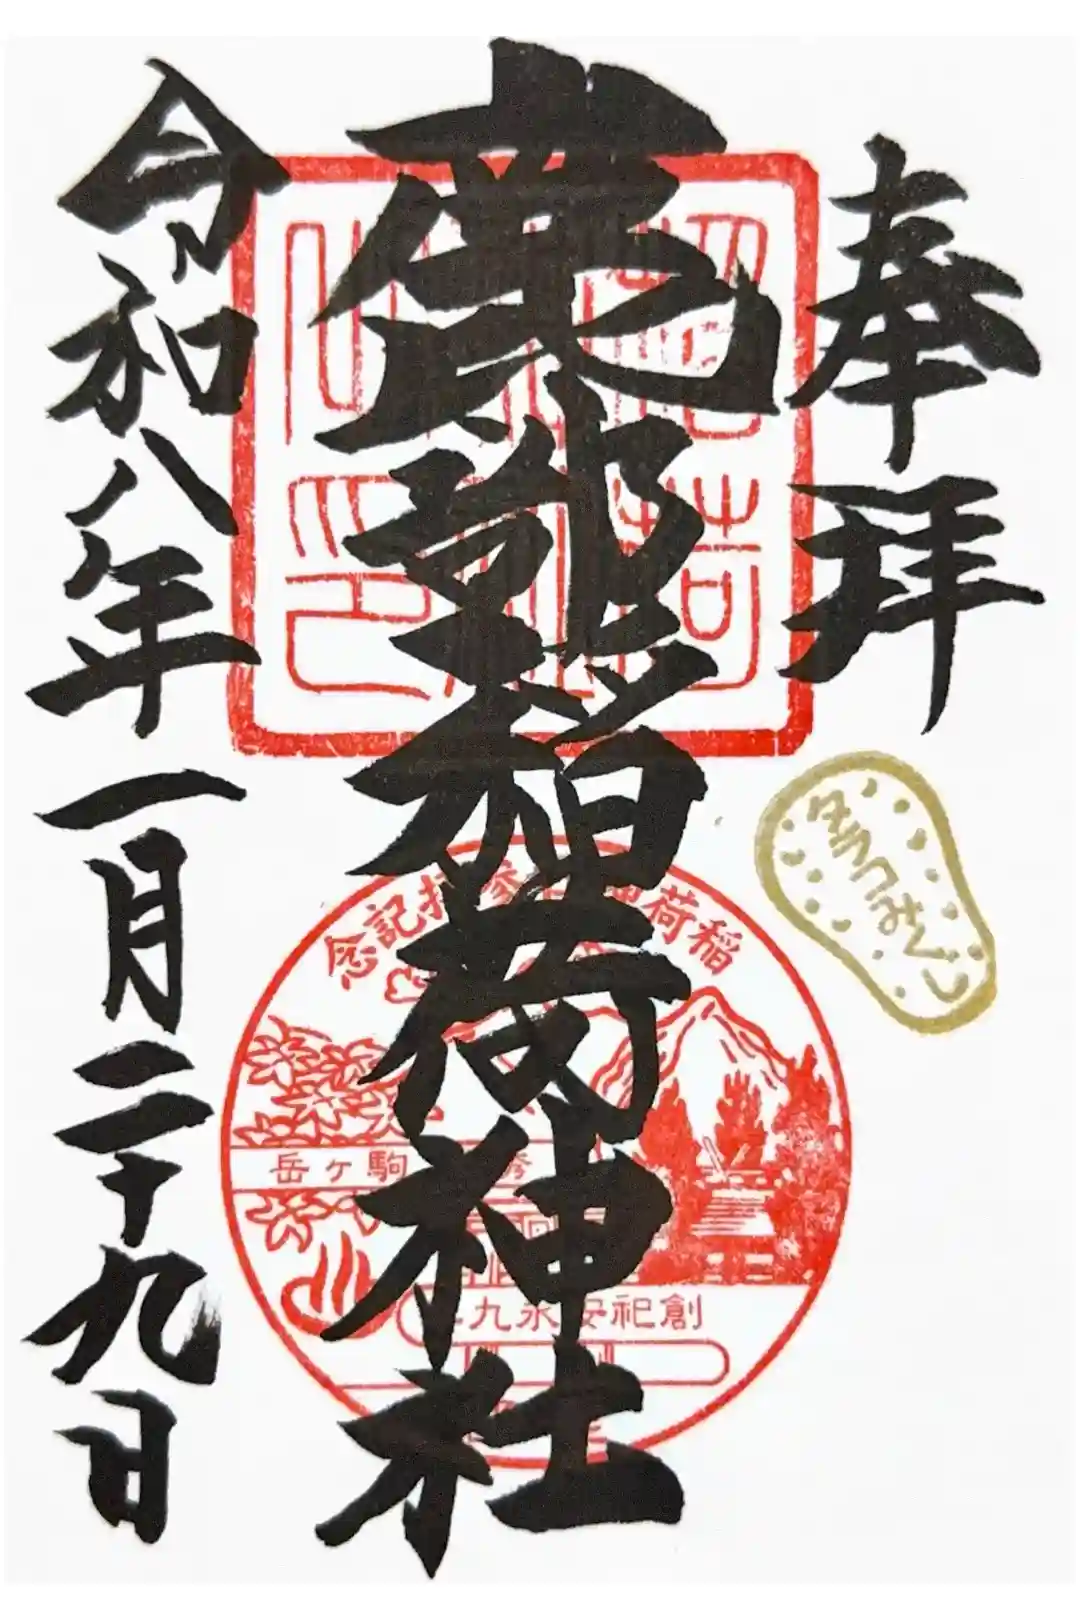 奉拝
鹿部稲荷神社
令和八年一月二十九日
稲荷神社参拝記念
駒ヶ岳
創祀安永九年
タラコみくじ